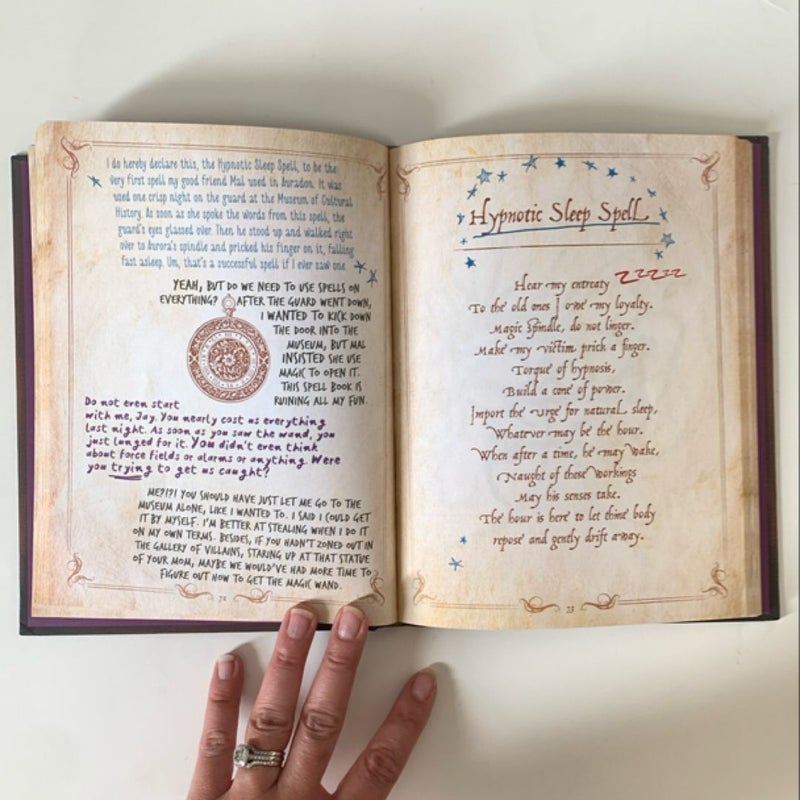 I do hereby declare this, the Hypnotic Sleep Spell, to be the
very first spell my good friend Mal used in Auradon. It was
used one crisp night on the guard at the Museum of Cultural
History. As soon as she spoke the words from this spell, the
guard's eyes glassed over. Then he stood up and walked right
over to Aurora's spindle and pricked his finger on it, falling
fast asleep. Um, that's a successful spell if I ever saw one.
YEAH, BUT DO WE NEED TO USE SPELLS ON
EVERYTHING? AFTER THE GUARD WENT DOWN,
I WANTED TO KICK DOWN
THE DOOR INTO THE
MUSEUM, BUT MAL
INSISTED SHE USE
MAGIC TO OPEN IT.
THIS SPELL BOOK IS
RUINING ALL MY FUN.
Do not even start
with me, Jay. You nearly cost us everything
last night. As soon as you saw the wand, you
just lunged for it. You didn't even think
about force fields or alarms or anything. Were
you trying to get us caught?
ME?!?! YOU SHOULD HAVE JUST LET ME GO TO THE
MUSEUM ALONE, LIKE I WANTED TO. I SAID I COULD GET
IT BY MYSELF. I'M BETTER AT STEALING WHEN I DO IT
ON MY OWN TERMS. BESIDES, IF YOU HADN'T ZONED OUT IN
THE GALLERY OF VILLAINS, STARING UP AT THAT STATUE
OF YOUR MOM, MAYBE WE WOULD'VE HAD MORE TIME TO
FIGURE OUT HOW TO GET THE MAGIC WAND.
72
Hypnotic Sleep Spell
zzzzz
Hear my entreaty
To the old ones I owe my loyalty.
Magic Spindle, do not linger.
Make my victim prick a finger.
Torque of hypnosis,
Build a cone of power.
Import the urge for natural sleep,
Whatever may be the hour.
When after a time, he may wake,
Naught of these workings
May his senses take.
The hour is here to let thine body
repose and gently drift away.
73